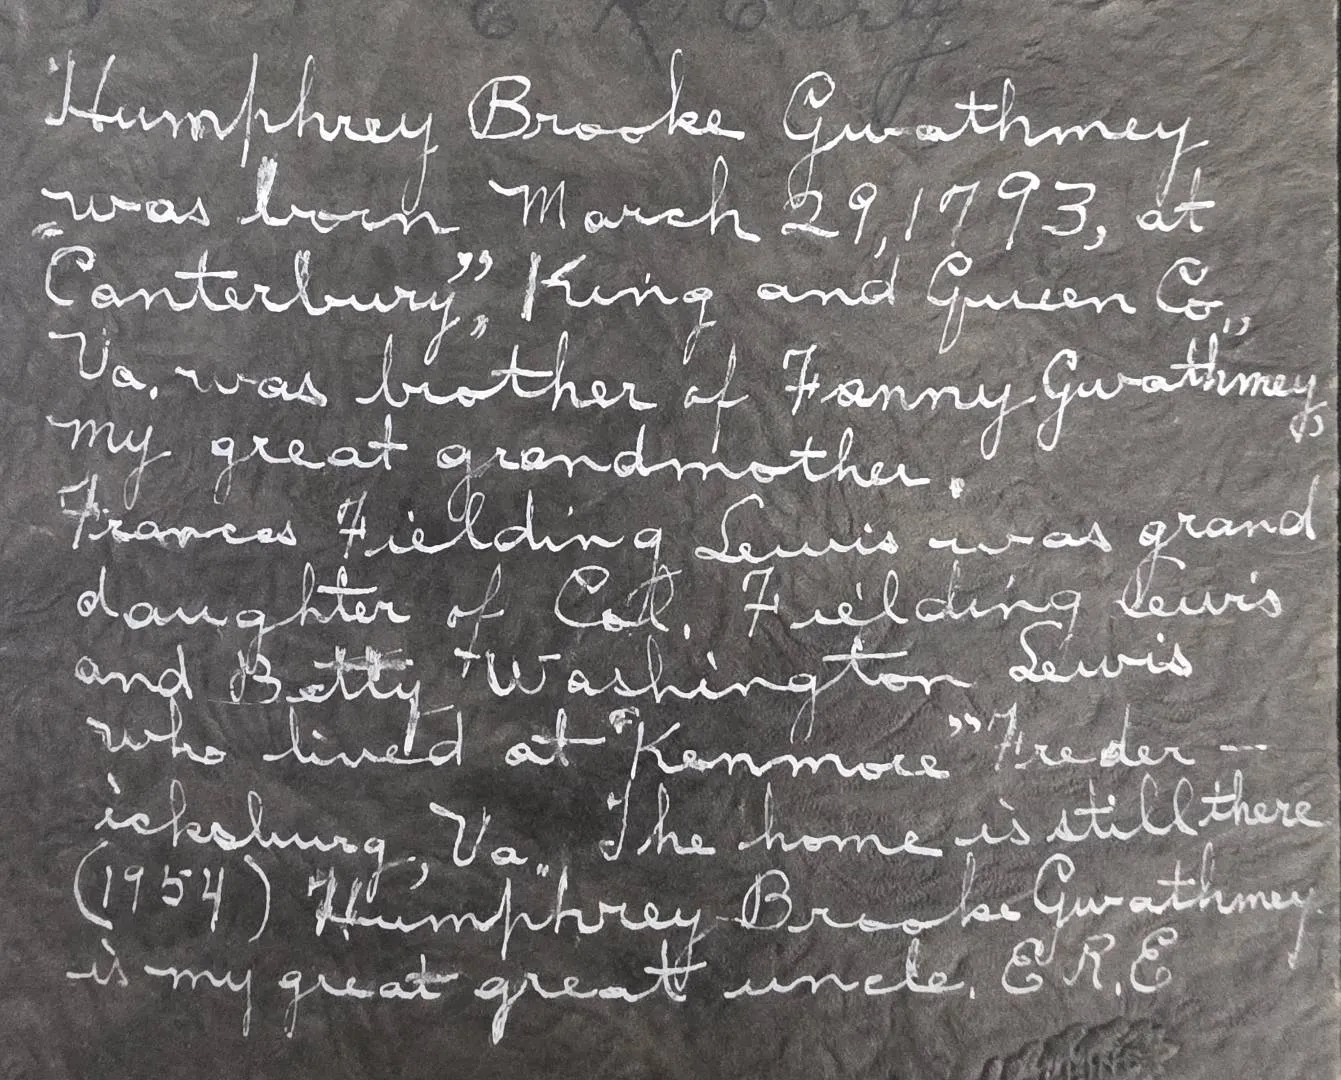 Humphrey Brooke Gwathmey
was born March 29, 1793, at
"Canterbury", King and Queen Co.,
Va. was brother of Fanny Gwathmey,
my great grandmother.
Frances Fielding Lewis was grand
daughter of Col. Fielding Lewis
and Betty Washington Lewis
who lived at "Kenmore" Freder-
icksburg, Va. The home is still there
(1954) Humphrey Brooke Gwathmey
is my great great uncle. E.R.E